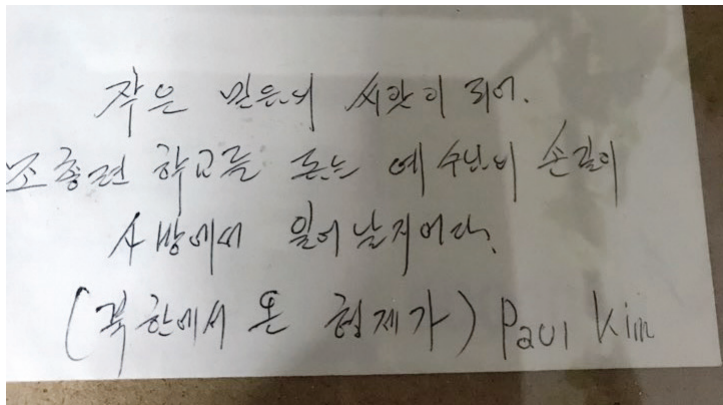 작은 믿음의 씨앗이 되어.
조총련 학교를 돕는 예수님의 손길이
사방에서 일어날지어다.
(북한에서 온 형제가) Paul Kim